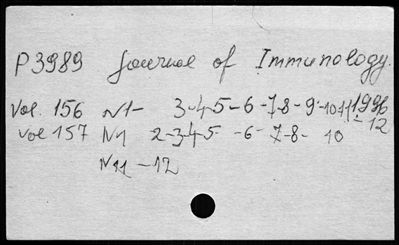 P3989 Journal of Immunology.
Vol. 156 N1- 3-4-5-6-7-8-9-10-11-12 1996
Vol 157 N1 2-3-4-5- -6- 7-8- 10
N11 -12